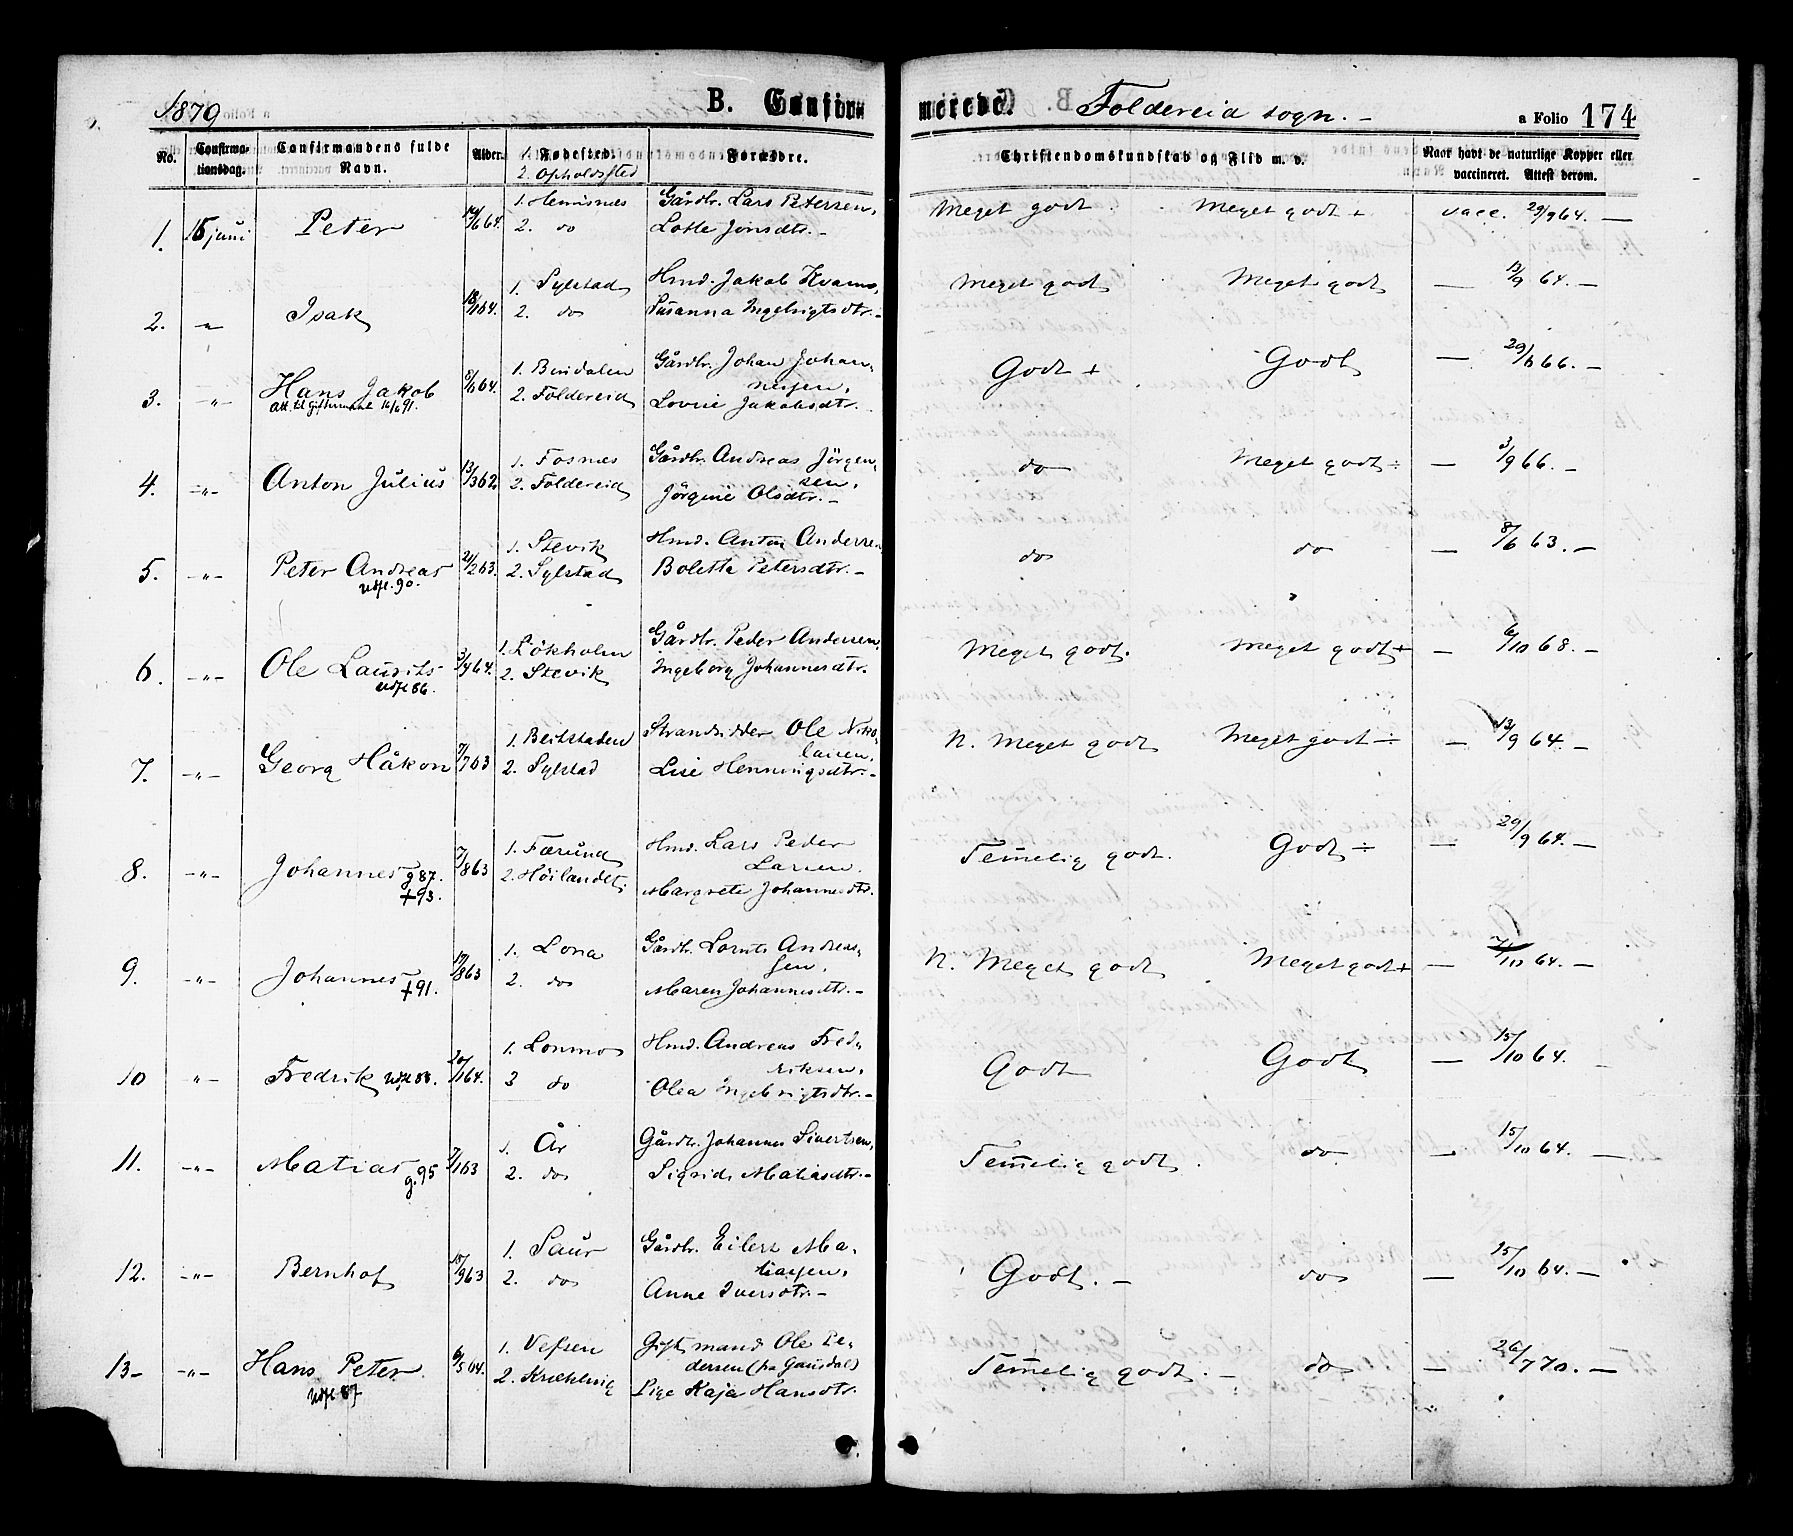 1879 B. Confirmerede. Foldereid sogn.- a Folio 174
No. Confirmationsdag. Confirmandens fulde Navn. Alder. 1. Fødested. 2. Opholdssted Forældre. Christendomskundskab og Flid m. v. Naar havt de naturlige Kopper eller vaccineret. Attest derom.
1. 15 juni Peter 64. 1. 2. do Gårdbr. Lars Petersen,
Lotte Jonsdtr.- Meget godt. Meget godt + vacc. 29/9 64. —
2. -"- Isak 64. 1. Sylstad Hmd. Jakob
2. do Susanna Ingebrigtsdtr.- Meget godt Meget godt — 13/9 64. —
3. -"- Hans Jakob 64. 1. Bindalen Gårdbr. Johan Johan-
att. til giftermaal 91. 2. Foldereid nesen,
Lovise Jakobsdtr. Godt + Godt — 66. —
4. -"- Anton Julius 13/3 62 1. Fosnes Gårdbr. Andreas Jörgen-
2. Foldereid sen,
Jörgine Olsdtr.- do Meget godt ÷ — 3/9 66. —
5. -"- Peter Andreas 63. 1. Stevik Hmd. Anton Andersen
udfl. 90. 2. Sylstad Bolette Petersdtr.- do do — 8/6 63. —
6. -"- Ole Laurits 64. 1. Lökholm Gårdbr. Peder Andersen,
udfl 86. 2. Stevik Ingeborg Johannesdtr. Meget godt. Meget godt + — 6/10 68. —
7. -"- Georg Håkon 7/7 63 1. Beitstaden Strandsidder Ole Niko-
2. Sylstad laisen,
Lise Henningsdtr.- N. Meget godt Meget godt ÷ — 13/9 64. —
8. -"- Johannes g 87. +93. 7/8 63 1. Færsund Hmd. Lars Peder
2. Höilandet; Larsen.
Margrete Johannesdtr. Temelig godt. Godt ÷ — 29/9 64. —
9. -"- Johannes +91. 17/8 63 1. Lona Gårdbr. Lornts Andreas-
2. do sen,
Maren Johannesdtr.- N. Meget godt Meget godt + — 7/10 64. —
10 -"- Fredrik udfl 88. 20/1 64. 1. Lonmo Hmd. Andreas Fred-
3 do riksen,
Olea Ingebrigtsdtr.- Godt Godt — 15/10 64. —
11. -"- Matias g. 95 63 1. År Gårdbr. Johannes Sivertsen,
2. do Sigrid Matiasdtr.- Temelig godt. do — 15/10 64. —
12. -"- Bernhof 63 1. Saur Gårdbr. Eilert Ma-
2. do tiasen,
Anne Iversdtr.- Godt. - do — 15/10 64. —
13- -"- Hans Peter 6/5 64 1. Vefsen Gift mand Ole Pe-
udfl 87 2. dersen (fra Gausdal)
Pige Kaja Hansdtr. Temelig godt. - do — 26/7 70. —